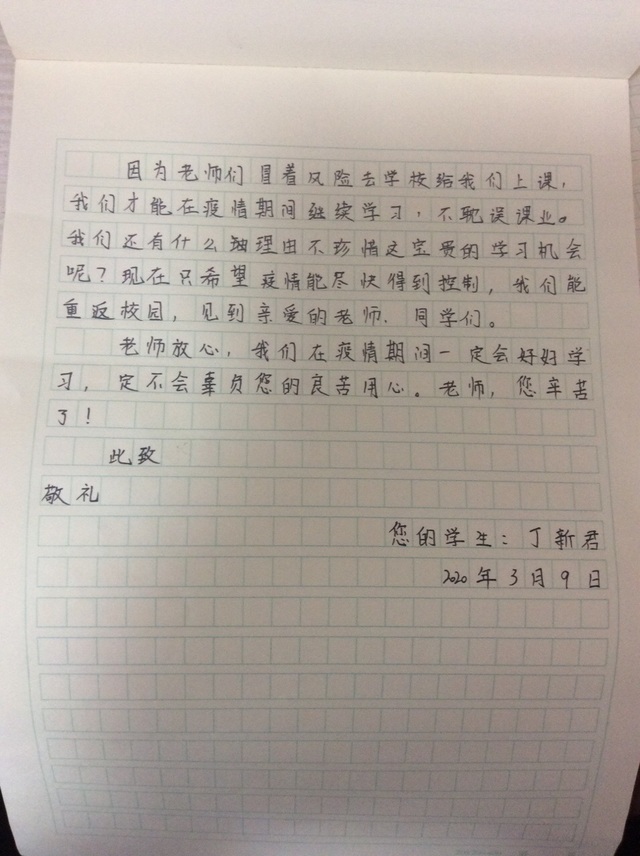 因为老师们冒着风险去学校给我们上课，
我们才能在疫情期间继续学习，不耽误课业。
我们还有什么理由不珍惜这宝贵的学习机会
呢？现在只希望疫情能尽快得到控制，我们能
重返校园，见到亲爱的老师、同学们。
老师放心，我们在疫情期间一定会好好学
习，定不会辜负您的良苦用心。老师，您辛苦
了！
此致
敬礼
您的学生：丁新君
2020年3月9日